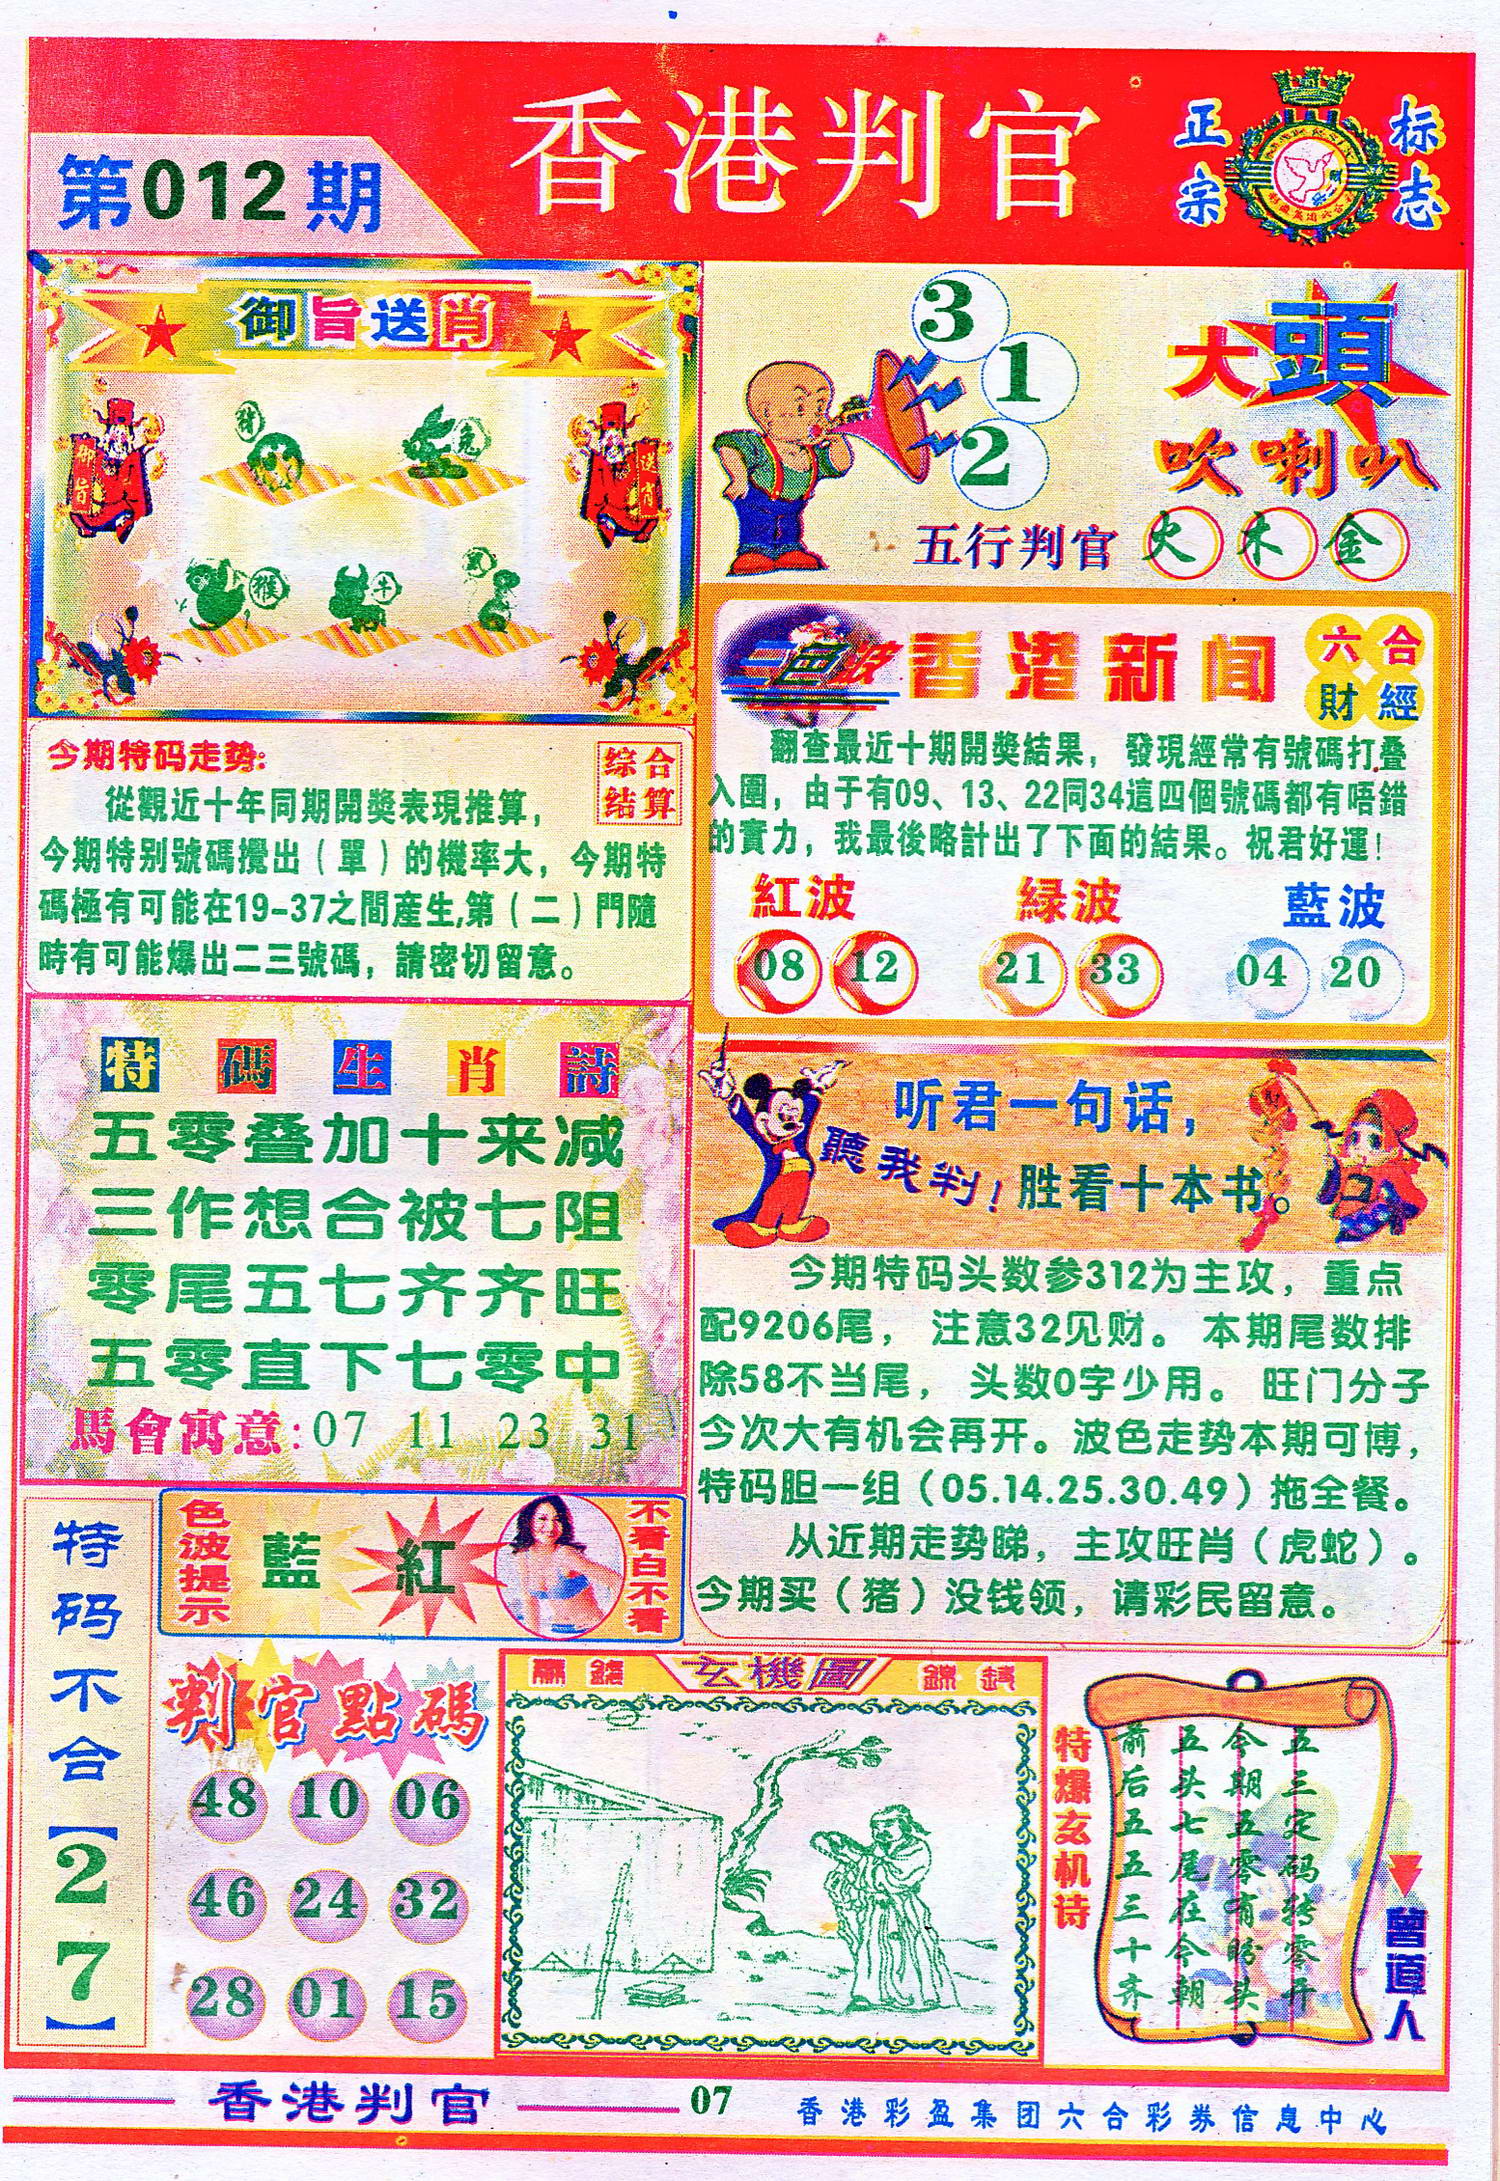 香港判官
正宗
标志
第012期
御旨送肖
御旨
送肖
猪
兔
猴
牛
鼠
3
1
2
大頭
吹喇叭
五行判官 火 木 金
今期特码走势:
综合
结算
從觀近十年同期開獎表現推算,
今期特别號碼攪出(單)的機率大,今期特
碼極有可能在19-37之間産生,第(二)門隨
時有可能爆出二三號碼,請密切留意。
三色波 香港新闻
六合
財經
翻查最近十期開獎結果,發現經常有號碼打叠
入圍,由于有09、13、22同34這四個號碼都有唔錯
的實力,我最後略計出了下面的結果。祝君好運!
紅波 緑波 藍波
08 12 21 33 04 20
特碼生肖詩
五零叠加十来减
三作想合被七阻
零尾五七齐齐旺
五零直下七零中
馬會寓意:07 11 23 31
听君一句话,
聽我判!
胜看十本书。
今期特码头数参312为主攻,重点
配9206尾,注意32见财。本期尾数排
除58不当尾,头数0字少用。旺门分子
今次大有机会再开。波色走势本期可博,
特码胆一组(05.14.25.30.49)拖全餐。
从近期走势睇,主攻旺肖(虎蛇)。
今期买(猪)没钱领,请彩民留意。
特码不合【27】
色波提示
藍
紅
不看白不看
判官點碼
48 10 06
46 24 32
28 01 15
玄機圖
特爆玄机诗
五三定码转零开
今期五零有盼头
五头七尾在今朝
前后五五三十齐
曾道人
香港判官
07
香港彩盈集团六合彩券信息中心